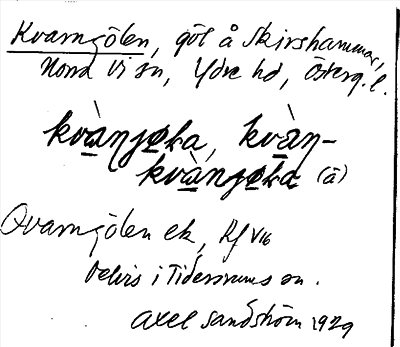 Kvarngölen, göl å Skirshammar,
Norra Vi sn, Ydre hd, Österg. l.
kvà̱njø̱ka, kvà̱n-
kvà̱ngø̱ka (ä)
Qvarngölen ek, Rf V16
Delvis i Tidersrums sn.
Axel Sandström 1929